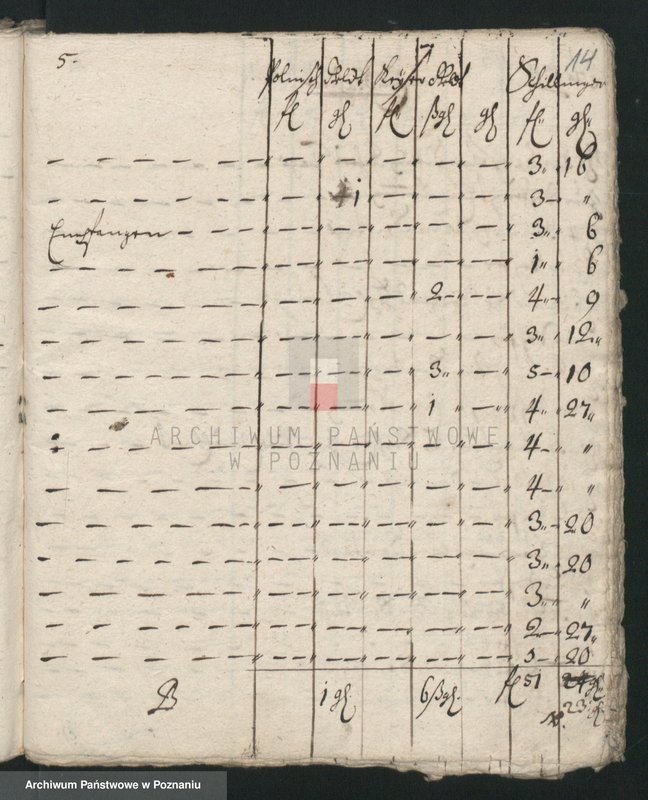 5.
7
14
Polnisch Geldt Keyser Geldt Schillinger
fl gl fl ßgl gl fl gl
6
3 „ 16
1 3 – „
Empfangen 3 „ 6
1 „ 6
2 4 „ 9
3 „ 12 „
3 „ 5 – 10
1 4 „ 27 „
4 – „
4 – „
3 „ 20
3 „ 20
3 „ „
2 27 „
20
1 gl. 6 ßgl. fl 51
23 gl
ARCHIWUM PAŃSTWOWE
W POZNANIU
Archiwum Państwowe w Poznaniu